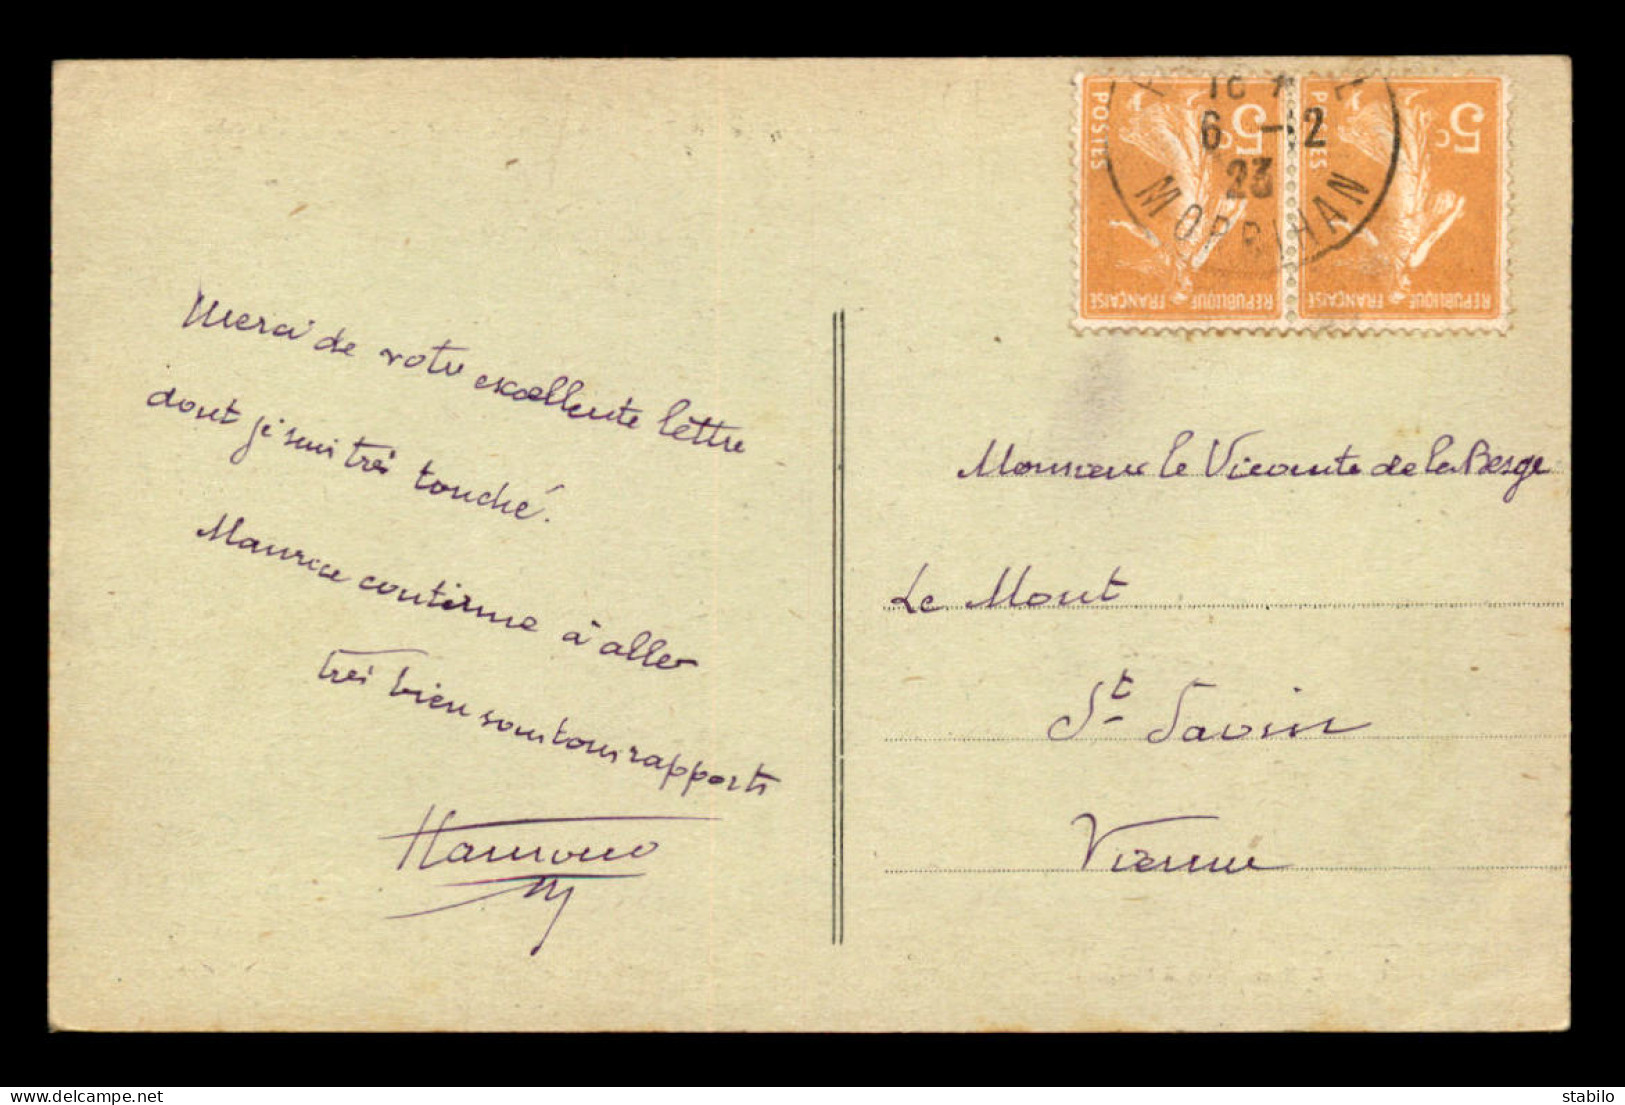 Merci de votre excellente lettre
dont je suis très touché.
Maurice continue à aller
très bien sous tous rapports
Monsieur le Vicomte de la Besge
Le Mont
St Savin
Vienne
6 -12
23
MORBIHAN
5c
POSTES
REPUBLIQUE FRANÇAISE
5c
POSTES
REPUBLIQUE FRANÇAISE
delcampe.net
stabilo